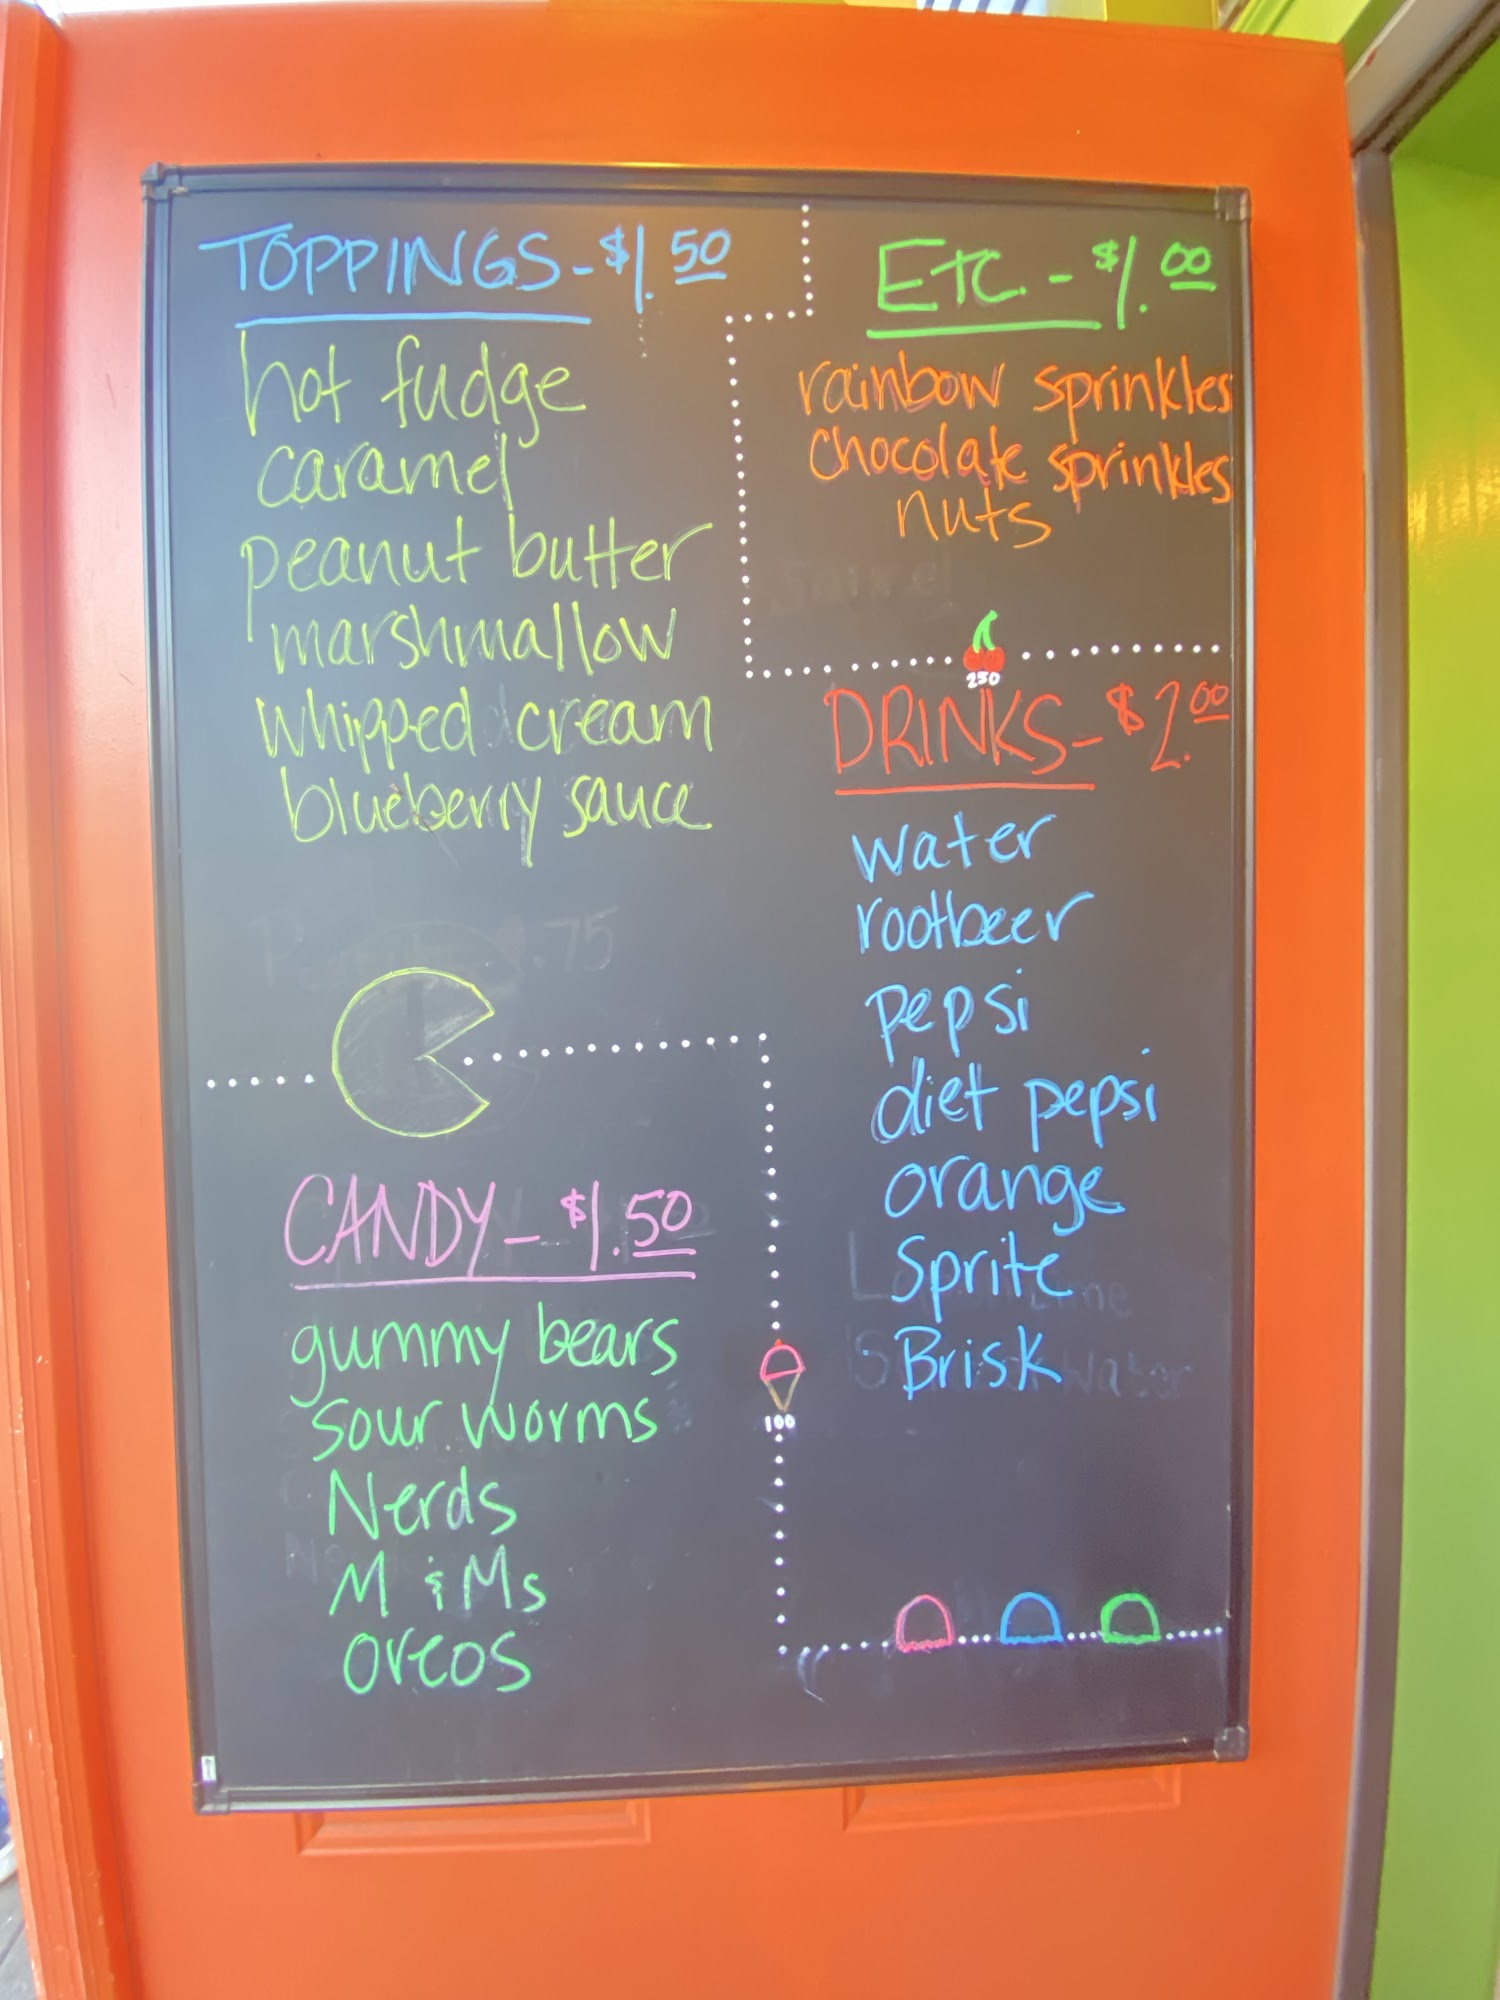 TOPPINGS - $1.50
hot fudge
caramel
peanut butter
marshmallow
whipped cream
blueberry sauce
ETC. - $1.00
rainbow sprinkles
chocolate sprinkles
nuts
250
DRINKS - $2.00
water
rootbeer
pepsi
diet pepsi
orange
Sprite
Brisk
CANDY - $1.50
gummy bears
sour worms
Nerds
M & Ms
oreos
100